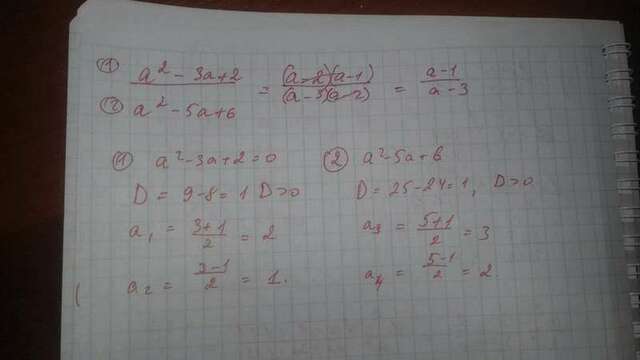 ① a² - 3a + 2 = (a-2)(a-1) = a-1
② a² - 5a + 6 (a-3)(a-2) a-3
① a² - 3a + 2 = 0
D = 9 - 8 = 1 D > 0
a₁ = 3+1/2 = 2
a₂ = 3-1/2 = 1.
② a² - 5a + 6
D = 25 - 24 = 1, D > 0
a₃ = 5+1/2 = 3
a₄ = 5-1/2 = 2.